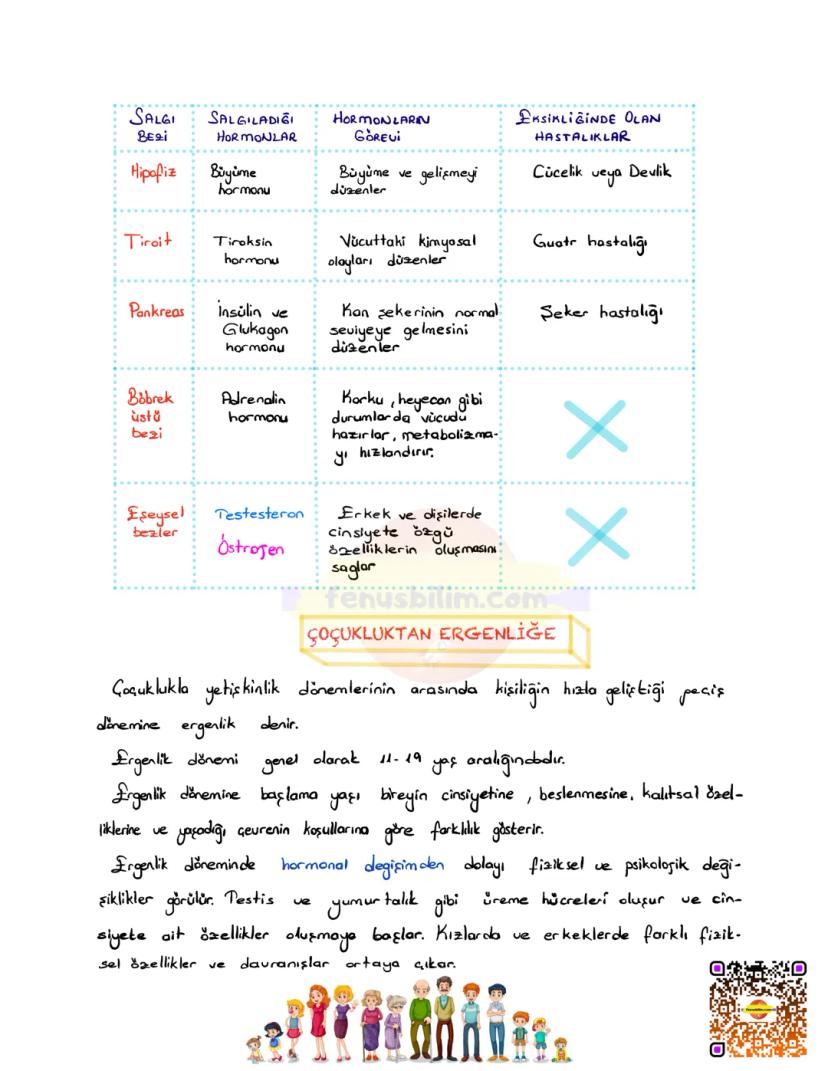 SALGI BEZİ
SALGILADIĞI HORMONLAR
HORMONLARIN GÖREVİ
EKSİKLİĞİNDE OLAN HASTALIKLAR
Hipofiz
Büyüme hormonu
Büyüme ve gelişmeyi düzenler
Cücelik veya Devlik
Tiroit
Tiroksin hormonu
Vücuttaki kimyasal olayları düzenler
Guatr hastalığı
Pankreas
İnsülin ve Glukagon hormonu
Kan şekerinin normal seviyeye gelmesini düzenler
Şeker hastalığı
Böbrek üstü bezi
Adrenalin hormonu
Korku, heyecan gibi durumlarda vücudu hazırlar, metabolizma-yı hızlandırır.
Eşeysel bezler
Testesteron
Östrojen
Erkek ve dişilerde cinsiyete özgü özelliklerin oluşmasını sağlar
fenusbilim.com
ÇOÇUKLUKTAN ERGENLİĞE
Çocuklukla yetişkinlik dönemlerinin arasında kişiliğin hızla geliştiği geçiş
dönemine ergenlik denir.
Ergenlik dönemi genel olarak 11-19 yaş aralığındadır.
Ergenlik dönemine başlama yaşı bireyin cinsiyetine, beslenmesine, kalıtsal özel-
liklerine ve yaşadığı çevrenin koşullarına göre farklılık gösterir.
Ergenlik döneminde hormonal değişimden dolayı fiziksel ve psikolojik deği-
şiklikler görülür. Testis ve yumurtalık gibi üreme hücreleri oluşur ve cin-
siyete ait özellikler oluşmaya başlar. Kızlarda ve erkeklerde farklı fizik-
sel özellikler ve davranışlar ortaya çıkar.
Fenusbilim.com